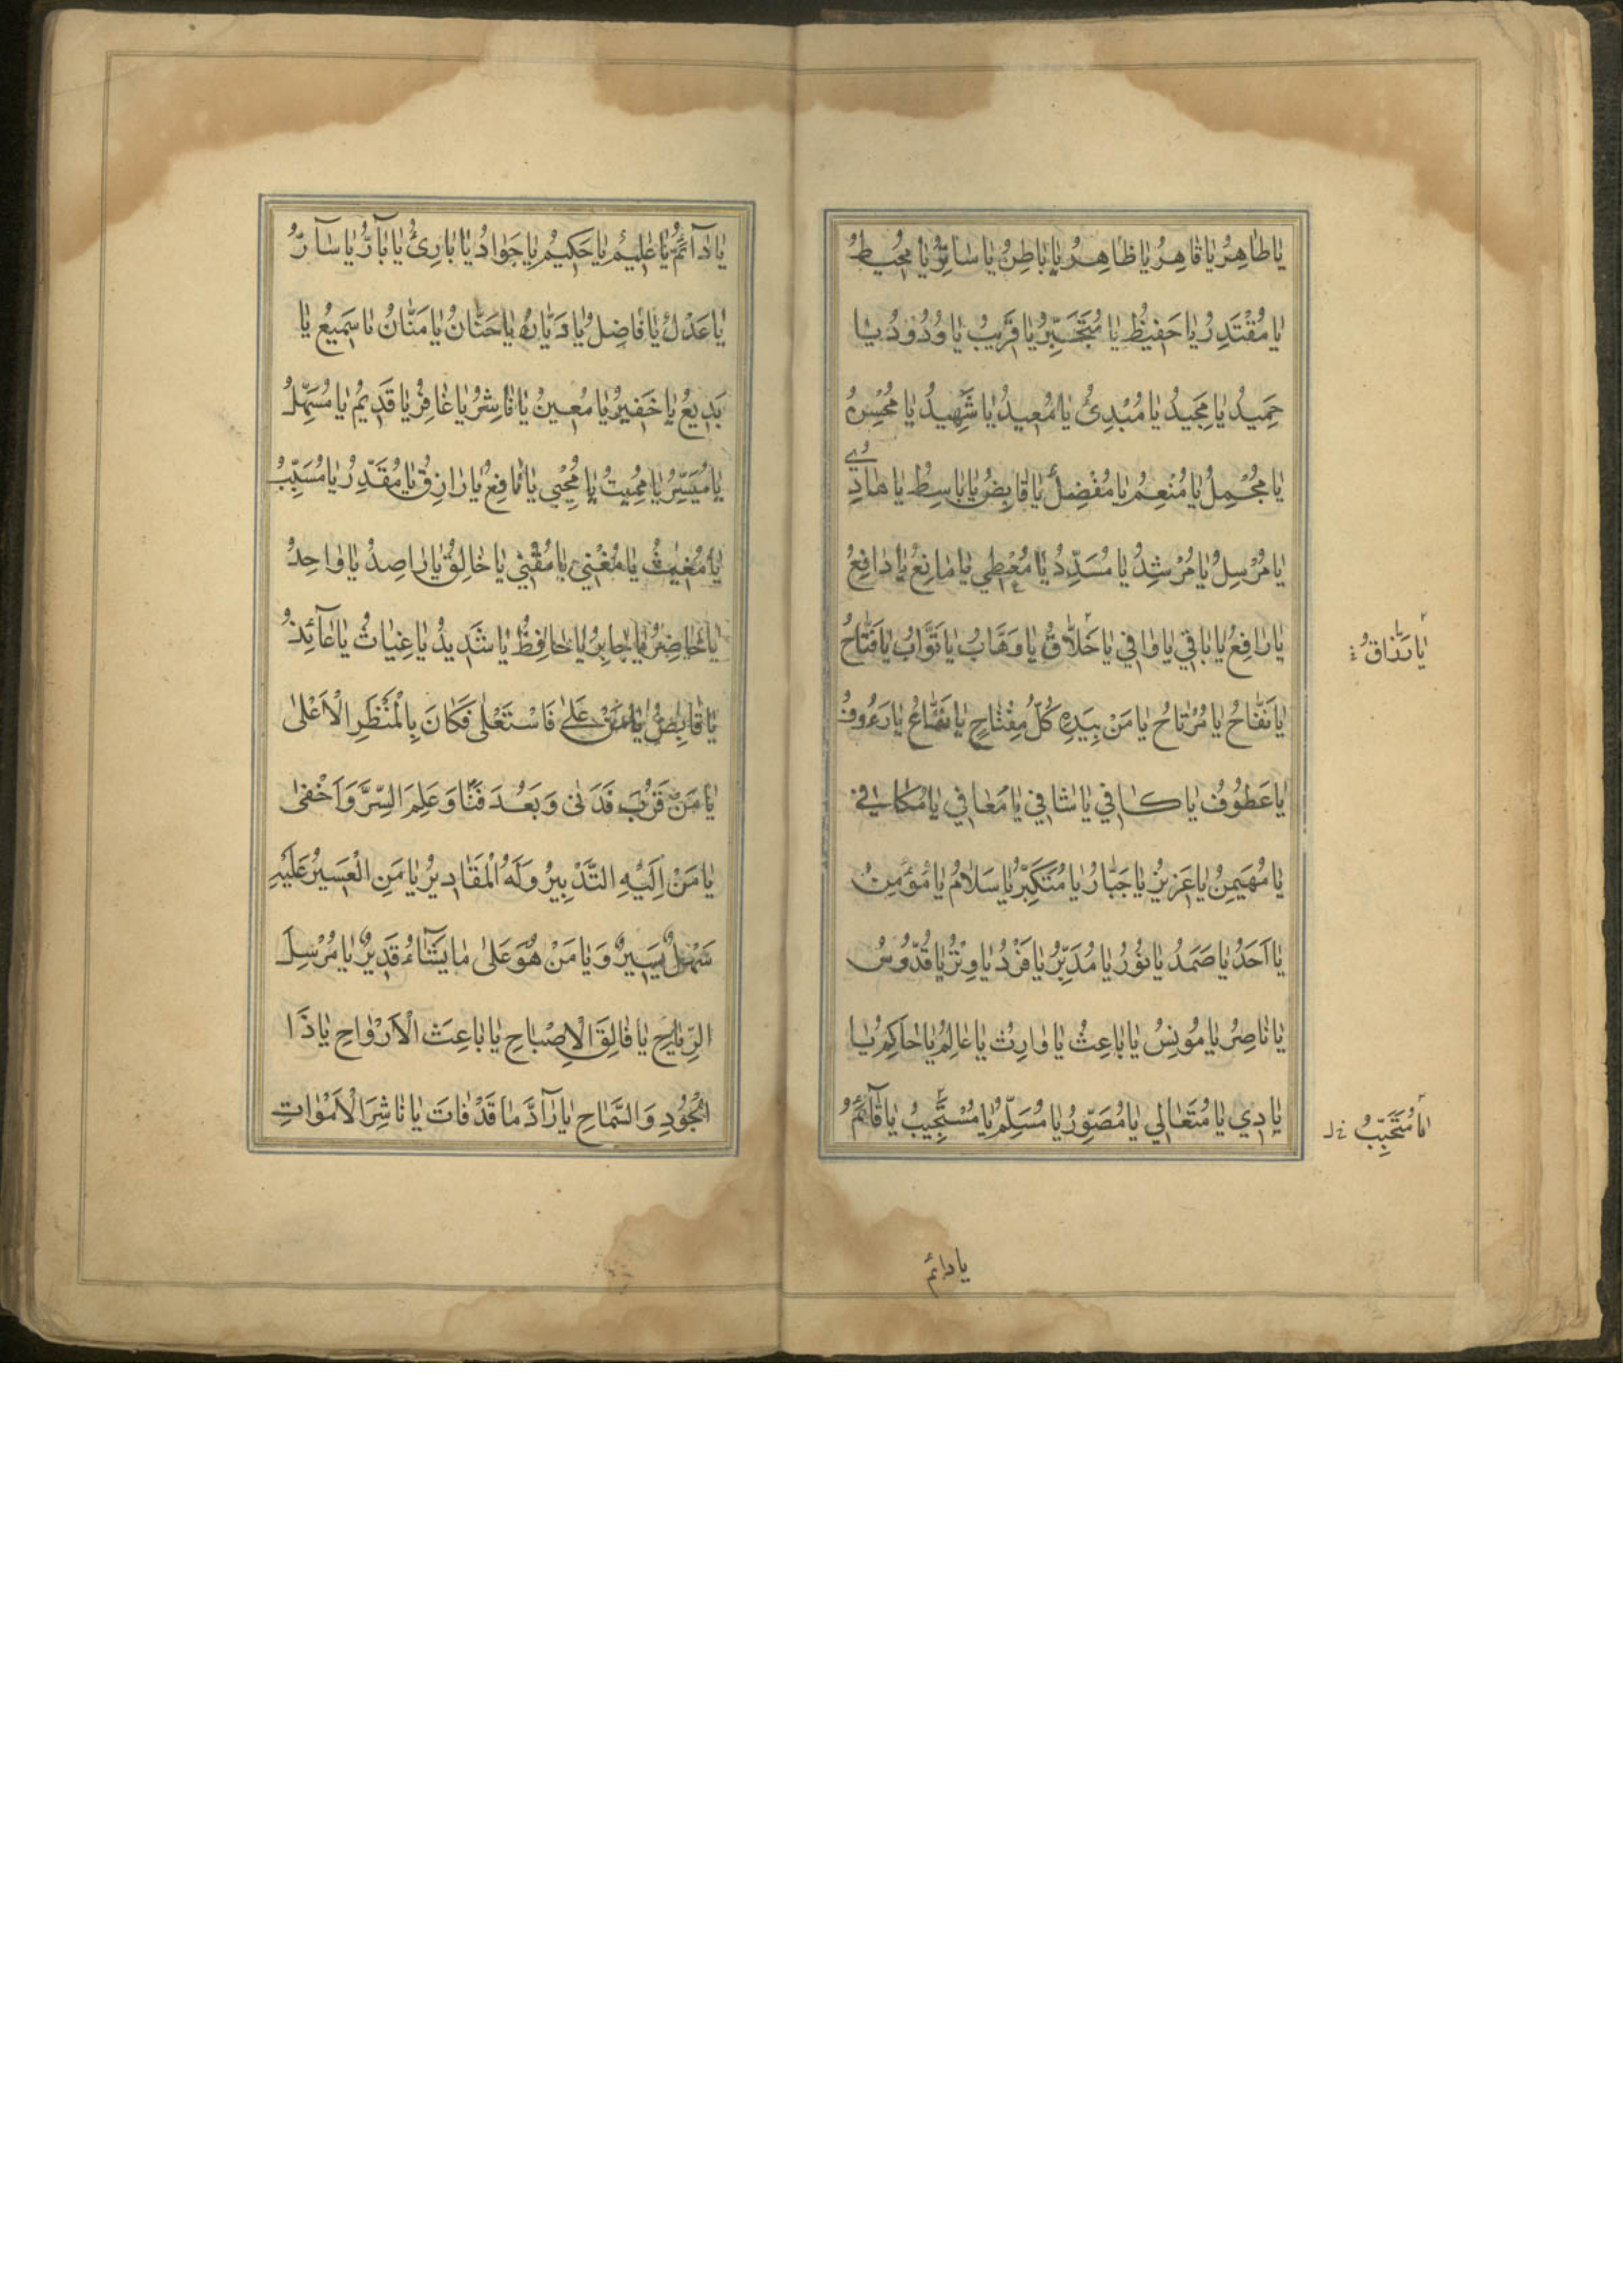 يَا طَاهِرُ يَا قَاهِرُ يَا ظَاهِرُ يَا بَاطِنُ يَا سَاتِرُ يَا مُحِيطُ
يَا مُقْتَدِرُ يَا حَفِيظُ يَا مُتَجَبِّرُ يَا قَرِيبُ يَا وَدُودُ يَا
حَمِيدُ يَا مَجِيدُ يَا مُبْدِئُ يَا مُعِيدُ يَا شَهِيدُ يَا مُحْسِنُ
يَا مُجْمِلُ يَا مُنْعِمُ يَا مُفْضِلُ يَا قَابِضُ يَا بَاسِطُ يَا هَادِي
يَا مُرْسِلُ يَا مُرْشِدُ يَا مُسَدِّدُ يَا مُعْطِي يَا مَانِعُ يَا دَافِعُ
يَا رَافِعُ يَا بَاقِي يَا وَافِي يَا خَلَّاقُ يَا وَهَّابُ يَا تَوَّابُ يَا فَتَّاحُ
يَا رَزَّاقُ
يَا نَفَّاحُ يَا مُرْتَاحُ يَا مَنْ بِيَدِهِ كُلُّ مِفْتَاحٍ يَا نَفَّاعُ يَا رَءُوفُ
يَا عَطُوفُ يَا كَافِي يَا شَافِي يَا مُعَافِي يَا مُكَافِي
يَا مُهَيْمِنُ يَا عَزِيزُ يَا جَبَّارُ يَا مُتَكَبِّرُ يَا سَلَامُ يَا مُؤْمِنُ
يَا أَحَدُ يَا صَمَدُ يَا نُورُ يَا مُدَبِّرُ يَا فَرْدُ يَا وِتْرُ يَا قُدُّوسُ
يَا نَاصِرُ يَا مُونِسُ يَا بَاعِثُ يَا وَارِثُ يَا عَالِمُ يَا حَاكِمُ يَا
بَادِي يَا مُتَعَالِي يَا مُصَوِّرُ يَا مُسَلِّمُ يَا مُسْتَجِيبُ يَا قَآئِمُ
يَا مُتَحَبِّبُ خ ل
يا دائم
يَا دَآئِمُ يَا عَلِيمُ يَا حَكِيمُ يَا جَوَادُ يَا بَارِئُ يَا بَآرُّ يَا سَآرُّ
يَا عَدْلُ يَا فَاصِلُ يَا دَيَّانُ يَا حَنَّانُ يَا مَنَّانُ يَا سَمِيعُ يَا
بَدِيعُ يَا خَفِيرُ يَا مُعِينُ يَا نَاشِرُ يَا غَافِرُ يَا قَدِيمُ يَا مُسَهِّلُ
يَا مُيَسِّرُ يَا مُمِيتُ يَا مُحْيِي يَا نَافِعُ يَا رَازِقُ يَا مُقَدِّرُ يَا مُسَبِّبُ
يَا مُغِيثُ يَا مُغْنِي يَا مُقْنِي يَا خَالِقُ يَا رَاصِدُ يَا وَاحِدُ
يَا حَاضِرُ يَا جَابِرُ يَا حَافِظُ يَا شَدِيدُ يَا غِيَاثُ يَا عَآئِذُ
يَا قَابِضُ يَا مَنْ عَلَى فَاسْتَعْلَى فَكَانَ بِالْمَنْظَرِ الْأَعْلَى
يَا مَنْ قَرُبَ فَدَنَى وَبَعُدَ فَنَأَى وَعَلِمَ السِّرَّ وَأَخْفَى
يَا مَنْ إِلَيْهِ التَّدْبِيرُ وَلَهُ الْمَقَادِيرُ يَا مَنِ الْعَسِيرُ عَلَيْهِ
سَهْلٌ يَسِيرٌ وَيَا مَنْ هُوَ عَلَى مَا يَشَآءُ قَدِيرٌ يَا مُرْسِلَ
الرِّيَاحِ يَا فَالِقَ الْإِصْبَاحِ يَا بَاعِثَ الْأَرْوَاحِ يَا ذَا
الْجُودِ وَالسَّمَاحِ يَا رَآدَّ مَا قَدْ فَاتَ يَا نَاشِرَ الْأَمْوَاتِ